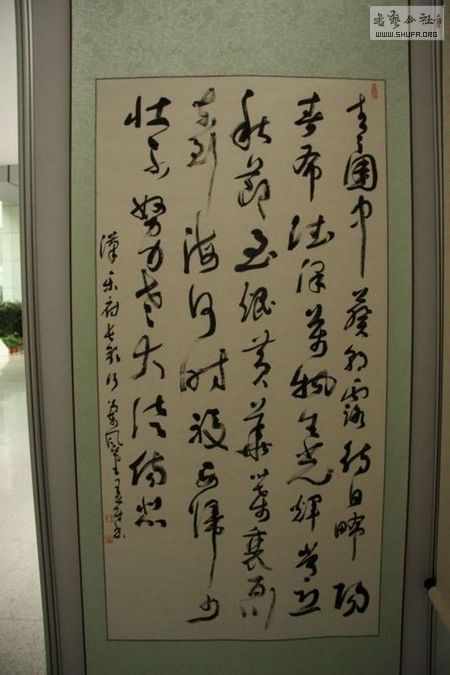 書藝公社
WWW.SHUFA.ORG
青青園中葵朝露待日晞陽
春布德澤萬物生光輝常恐
秋節至焜黃華葉衰百川
東到海何時復西歸少
壯不努力老大徒傷悲
漢樂府長歌行